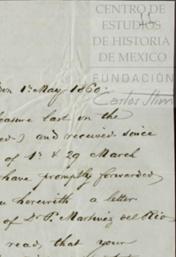 CENTRO DE
ESTUDIOS
DE HISTORIA
DE MEXICO
FUNDACIÓN
Carlos Slim
1st May 1860.
last on the
) and received since
of 1st & 29 March
have promptly forwarded
herewith a letter
of Dr P. Martinez del Rio
read, that your